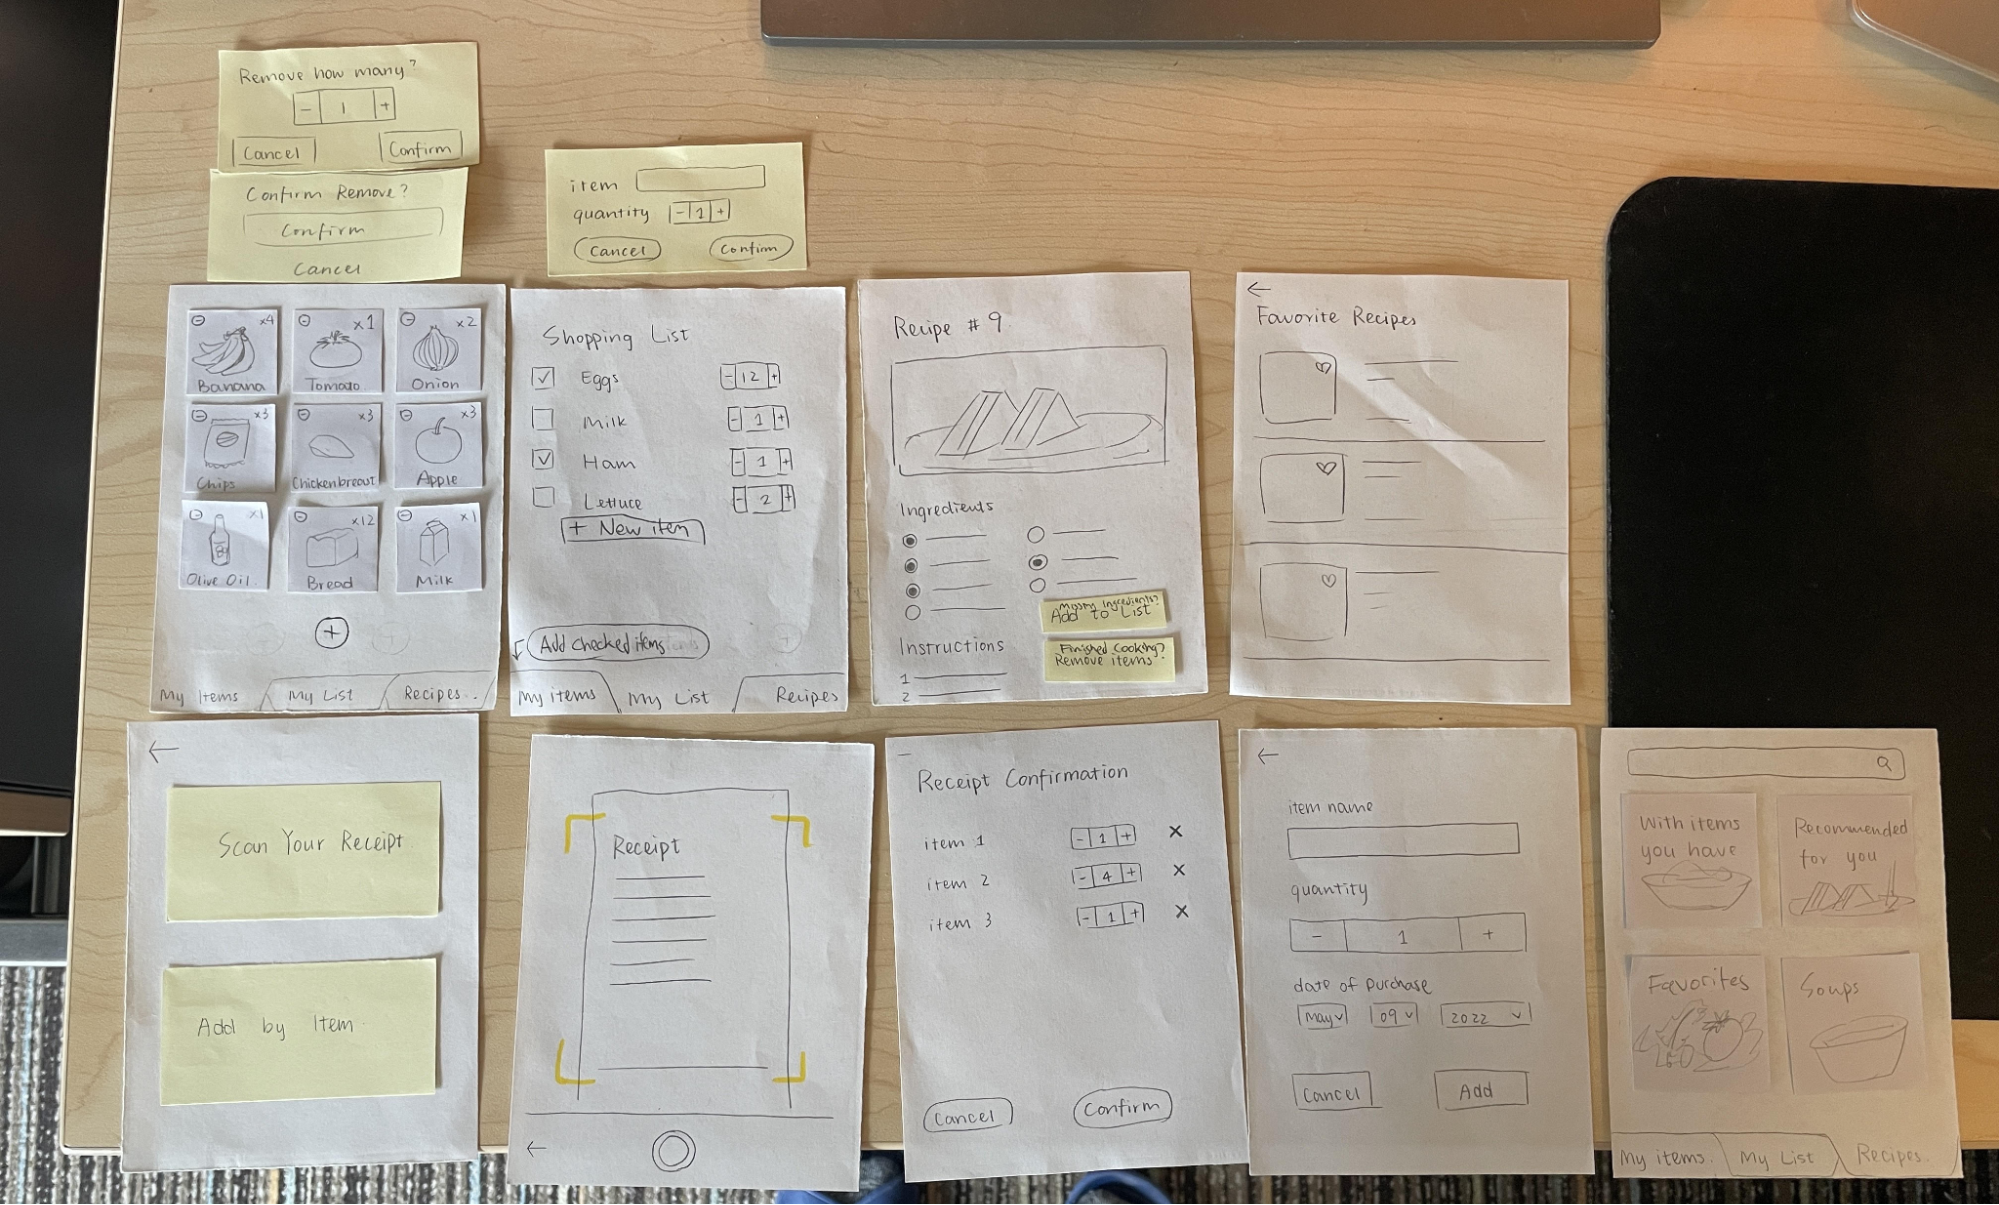 Remove how many?
- 1 +
Cancel Confirm
Confirm Remove?
Confirm
Cancel
item
quantity - 1 +
Cancel Confirm
x4 x1 x2
Banana Tomato Onion
x3 x3 x3
Chips Chickenbreast Apple
x1 x12 x1
Olive Oil Bread Milk
+
My Items My List Recipes
Shopping List
Eggs - 12 +
Milk - 1 +
Ham - 1 +
Lettuce - 2 +
+ New item
Add checked items
My items My List Recipes
Recipe # 9
Ingredients
Missing Ingredients?
Add to List
Finished Cooking?
Remove items
Instructions
1
2
Favorite Recipes
Scan Your Receipt
Add by Item
Receipt
Receipt Confirmation
item 1 - 1 + ×
item 2 - 4 + ×
item 3 - 1 + ×
Cancel Confirm
item name
quantity
- 1 +
date of purchase
May 09 2022
Cancel Add
With items
you have
Recommended
for you
Favorites
Soups
My items. My List Recipes.